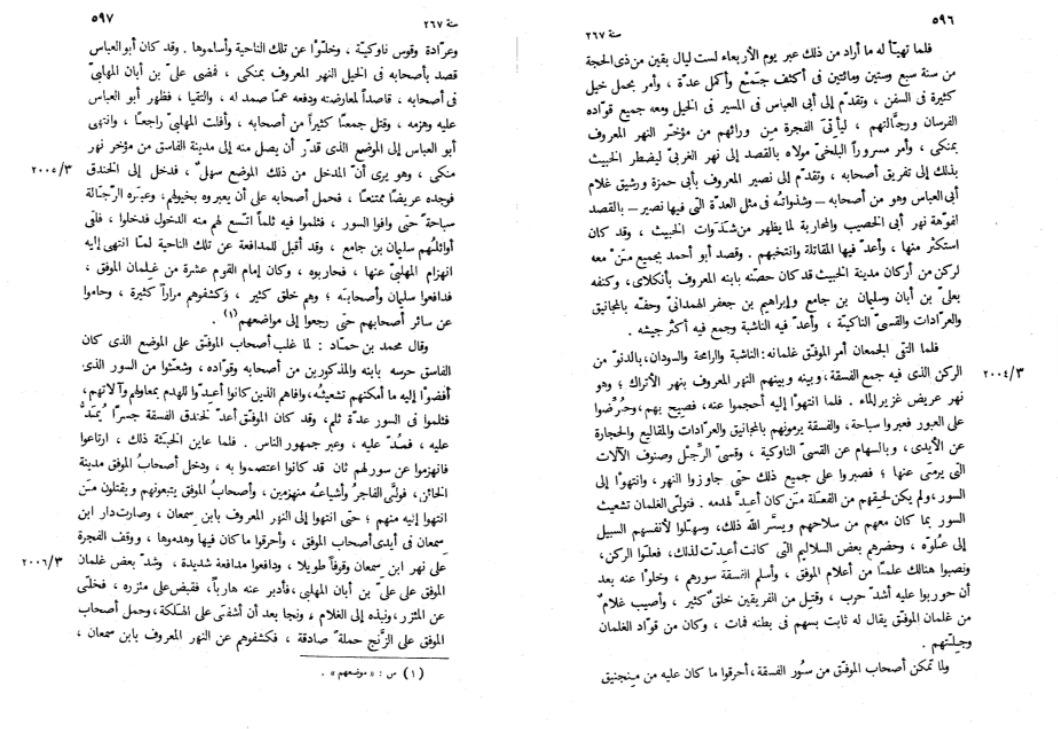 ٥٩٦
سنة ٢٦٧
فلما تهيأ له ما أراد من ذلك عبر يوم الأربعاء لست ليال بقين من ذى الحجة
من سنة سبع وستين ومائتين فى أكثف جَمْع وأكمل عدّة ، وأمر بحمل خيل
كثيرة فى السفن ، وتقدّم إلى أبى العباس فى المسير فى الخيل ومعه جميع قوّاده
الفرسان ورجّالتهم ، ليأتىَ الفجرة من ورائهم من مؤخّر النهر المعروف
بمنكى ، وأمر مسروراً البلخىّ مولاه بالقصد إلى نهر الغربىّ ليضطر الخبيث
بذلك إلى تفريق أصحابه ، وتقدّم إلى نصير المعروف بأبى حمزة ورشيق غلام
أبى العباس وهو من أصحابه – وشذواته فى مثل العدّة التى فيها نصير – بالقصد
لفوّهة نهر أبى الخصيب والمحاربة لما يظهر من شَذَوات الخبيث ، وقد كان
استكثر منها ، وأعدّ فيها المقاتلة وانتخبهم . وقصد أبو أحمد بجميع مَنْ معه
لركن من أركان مدينة الخبيث قد كان حصّنه بابنه المعروف بأنكلاى، وكنفه
بعلىّ بن أبان وسليمان بن جامع وإبراهيم بن جعفر الهمدانىّ وحفّه بالمجانيق
والعرادات والقسىّ الناكيّة ، وأعدّ فيه الناشبة وجمع فيه أكثر جيشه .
فلما التقى الجمعان أمر الموفق غلمانه: الناشبة والرامحة والسودان، بالدنوّ من
الركن الذى فيه جمع الفسقة، وبينه وبينهم النهر المعروف بنهر الأتراك ؛ وهو
٢٠٠٤/٣
نهر عريض غزير الماء . فلما انتهوْا إليه أحجموا عنه، فصيح بهم، وحُرِّضوا
على العبور فعبروا سباحة، والفسقة يرمونهم بالمجانيق والعرّادات والمقاليع والحجارة
عن الأيدى، وبالسهام عن القسىّ الناوكية ، وقسىّ الرِّجْل وصنوف الآلات
التى يرمَى عنها ؛ فصبروا على جميع ذلك حتى جاوزوا النهر، وانتهوْا إلى
السور، ولم يكن لحِقهم من الفَعَلة مَن كان أعِدَّ لهدمه . فتولّى الغلمان تشعيث
السور بما كان معهم من سلاحهم ويسَّر الله ذلك، وسهّلوا لأنفسهم السبيل
إلى عُلوّه ، وحضرهم بعض السلاليم التى كانت أعِدّت لذلك، فعلَوا الركن،
ونصبوا هنالك علماً من أعلام الموفق ، وأسلم الفسقة سورهم ، وخلوْا عنه بعد
أن حوربوا عليه أشدّ حرب ، وقتِل من الفريقين خلقٌ كثير ، وأصيب غلامٌ
من غلمان الموفّق يقال له ثابت بسهم فى بطنه فمات ، وكان من قوّاد الغلمان
وجلّتهم .
ولما تمكن أصحاب الموفّق من سُور الفسقة، أحرقوا ما كان عليه من مِنجنيق
سنة ٢٦٧
٥٩٧
وعرّادة وقوس ناوكيّة ، وخلّوْا عن تلك الناحية وأسلموها . وقد كان أبو العباس
قصد بأصحابه فى الخيل النهر المعروف بمنكى ، فمضى علىّ بن أبان المهلبىّ
فى أصحابه ، قاصداً لمعارضته ودفعه عمّا صمد له ، والتقيا ، فظهر أبو العباس
عليه وهزمه ، وقتل جمعًا كثيراً من أصحابه ، وأفلت المهلبىّ راجعًا ، وانتهى
أبو العباس إلى الموضع الذى قدّر أن يصل منه إلى مدينة الفاسق من مؤخر نهر
منكى ، وهو يرى أنّ المدخل من ذلك الموضع سهلٌ ، فدخل إلى الخندق
٢٠٠٥/٣
فوجده عريضًا ممتنعًا ، فحمل أصحابه على أن يعبروه بخيولهم، وعبره الرّجّالة
سباحةً حتى وافوا السور ، فثلموا فيه ثلماً اتّسع لهم منه الدخول فدخلوا ، فلقى
أوائلُهم سليمان بن جامع ، وقد أقبل للمدافعة عن تلك الناحية لمّا انتهى إليه
انهزام المهلبىّ عنها ، فحاربوه ، وكان إمام القوم عشرة من غِلمان الموفق ،
فدافعوا سليمان وأصحابَه ؛ وهم خلق كثير ، وكشفوهم مراراً كثيرة ، وحاموا
عن سائر أصحابهم حتى رجعوا إلى مواضعهم(١) .
وقال محمد بن حمّاد : لما غلب أصحاب الموفّق على الموضع الذى كان
الفاسق حرسه بابنه والمذكورين من أصحابه وقوّاده ، وشعّثوا من السور الذى
أفضوْا إليه ما أمكنهم تشعيثُه، وافاهم الذين كانوا أعدّوا للهدم بمعاولهم وآلاتهم ،
فثلموا فى السور عدّة ثلم، وقد كان الموفّق أعدّ لخندق الفسقة جسرًا يُمَدُّ
عليه ، فمُدّ عليه ، وعبر جمهور الناس . فلما عاين الخبثة ذلك ، ارتاعوا
فانهزموا عن سور لهم ثان قد كانوا اعتصموا به ، ودخل أصحابُ الموفق مدينة
الخائن، فولَّى الفاجرُ وأشياعُه منهزمين ، وأصحابُ الموفق يتبعونهم ويقتلون مَن
انتهوا إليه منهم ؛ حتى انتهوا إلى النهر المعروف بابن سِمعان ، وصارت دار ابن
سِمعان فى أيدى أصحاب الموفق ، وأحرقوا ما كان فيها وهدموها ، ووقف الفجرة
على نهر ابن سِمعان وقوفاً طويلا ، ودافعوا مدافعة شديدة ، وشدّ بعض غلمان
٢٠٠٦/٣
الموفق على علىّ بن أبان المهلبى، فأدبر عنه هارباً، فقبض على مئزره ، فخلّى
عن المئزر، ونبذه إلى الغلام ، ونجا بعد أن أشفى على الهلكة، وحمل أصحاب
الموفق على الزَّنج حملةً صادقة ، فكشفوهم عن النهر المعروف بابن سمعان ،
(١) س : «موضعهم» .